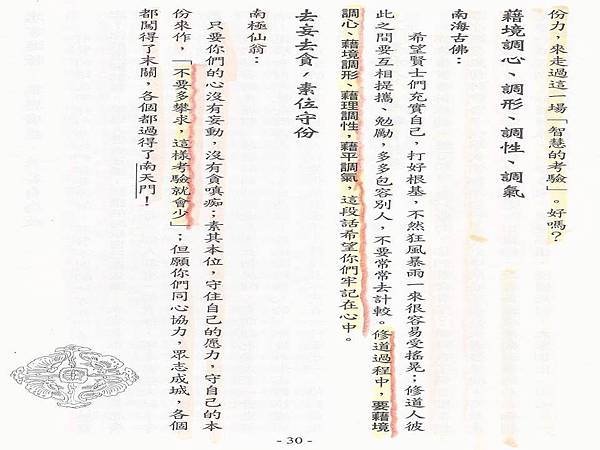 份力，來走過這一場「智慧的考驗」。好嗎？
藉境調心、調形、調性、調氣
南海古佛：
希望賢士們充實自己，打好根基，不然狂風暴雨一來很容易受搖晃；修道人彼
此之間要互相提攜、勉勵，多多包容別人，不要常常去計較。修道過程中，要藉境
調心、藉境調形、藉理調性，藉平調氣，這段話希望你們牢記在心中。
去妄去貪，素位守份
南極仙翁：
只要你們的心沒有妄動，沒有貪嗔痴；素其本位，守住自己的愿力，守自己的本
份來作，「不要多攀求，這樣考驗就會少」；但願你們同心協力，眾志成城，各個
都闖得了末關，各個都過得了南天門！
- 30 -